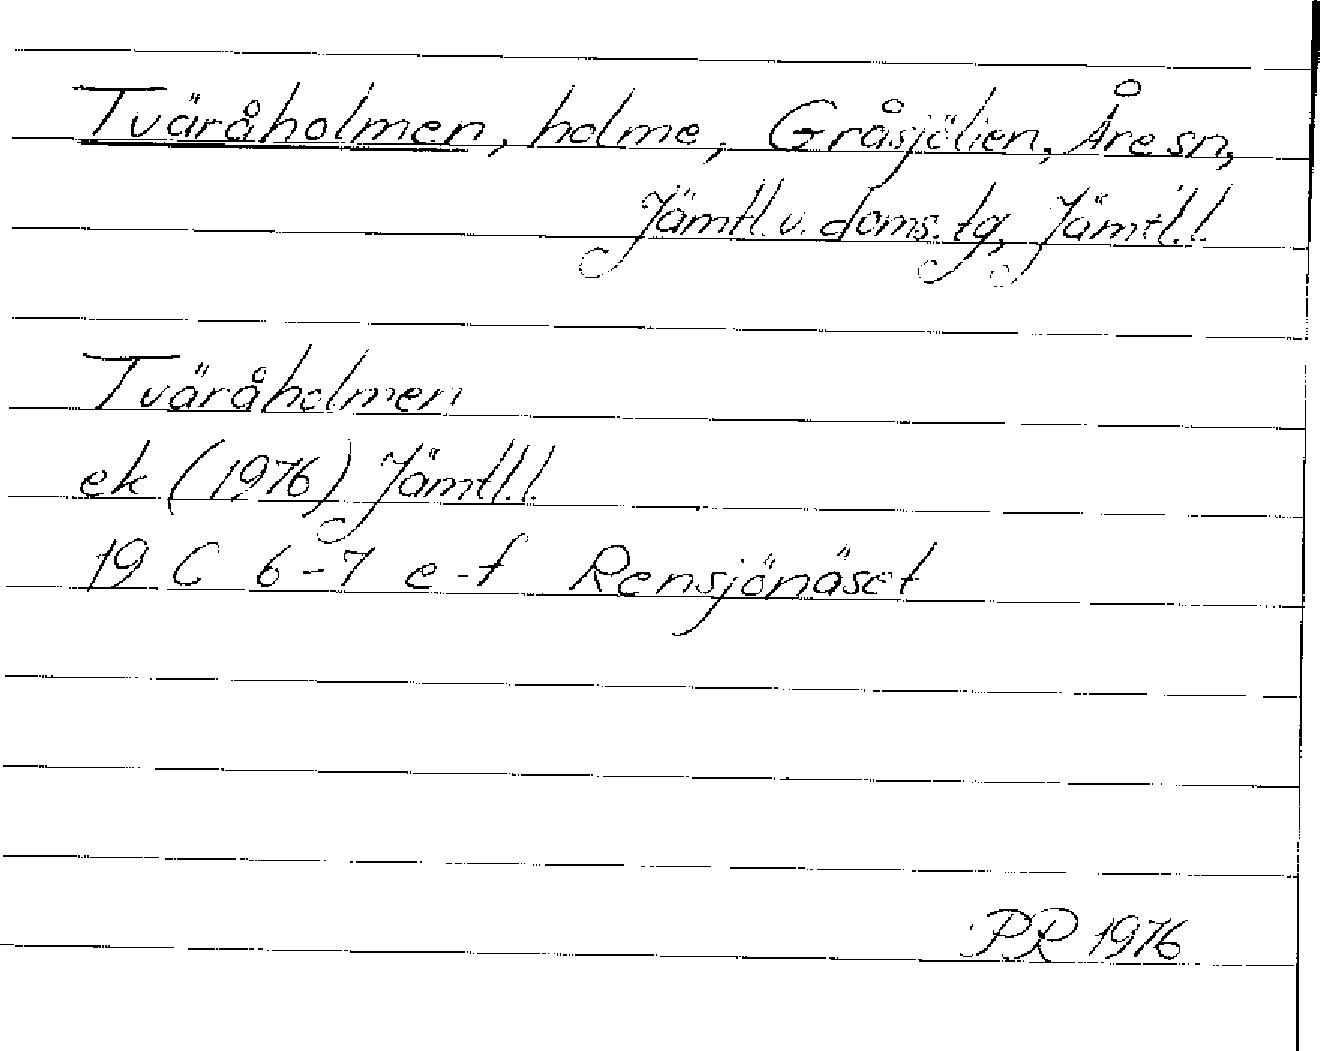 Tväråholmen, holme, Gråsjölien, Åre sn,
Jämtl. v. doms. tg, Jämtl. l.
Tväråholmen
ek (1976) Jämtl. l.
19 C 6-7 e-f Rensjönäset
PR 1976